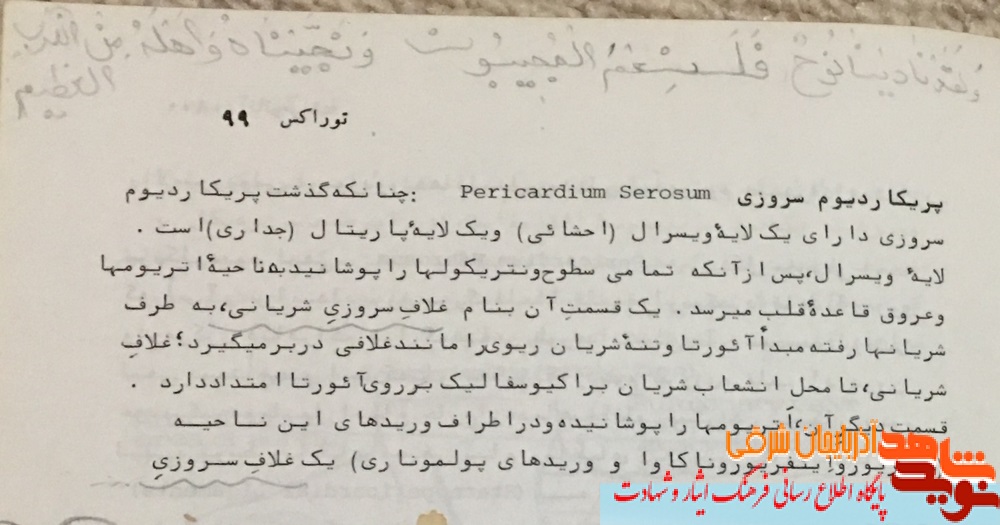 وَلَقَدْ نَادَینَا نُوحٌ فَلَنِعْمَ الْمُجیبُونَ وَنَجَّیْنَاهُ وَأَهْلَهُ مِنَ الْکَرْبِ
العَظِیم
توراکس ۹۹
پریکاردیوم سروزی Pericardium Serosum :چنانکه گذشت پریکاردیوم
سروزی دارای یک لایهٔ ویسرال (احشائی) ویک لایهٔ پاریتال (جداری) است .
لایهٔ ویسرال،پس ازآنکه تمامی سطوح ونتریکولها را پوشانید به ناحیهٔ اتریومها
وعروق قاعدهٔ قلب میرسد. یک قسمتِ آن بنام غلافِ سروزیِ شریانی،به طرف
شریانها رفته مبدأ آئورتا وتنهٔ شریان ریوی را مانند غلافی دربرمیگیرد؛غلافِ
شریانی،تا محل انشعاب شریان براکیوسفالیک برروی آئورتا امتداد دارد .
قسمت دیگر آن،اَتریومها را پوشانیده ودراطراف وریدهای این ناحیه
واینفریورونا کاوا و وریدهای پولموناری) یک غلافِ سروزیِ
شاهد
نوید
آذربایجان شرقی
پایگاه اطلاع رسانی فرهنگ ایثار و شهادت